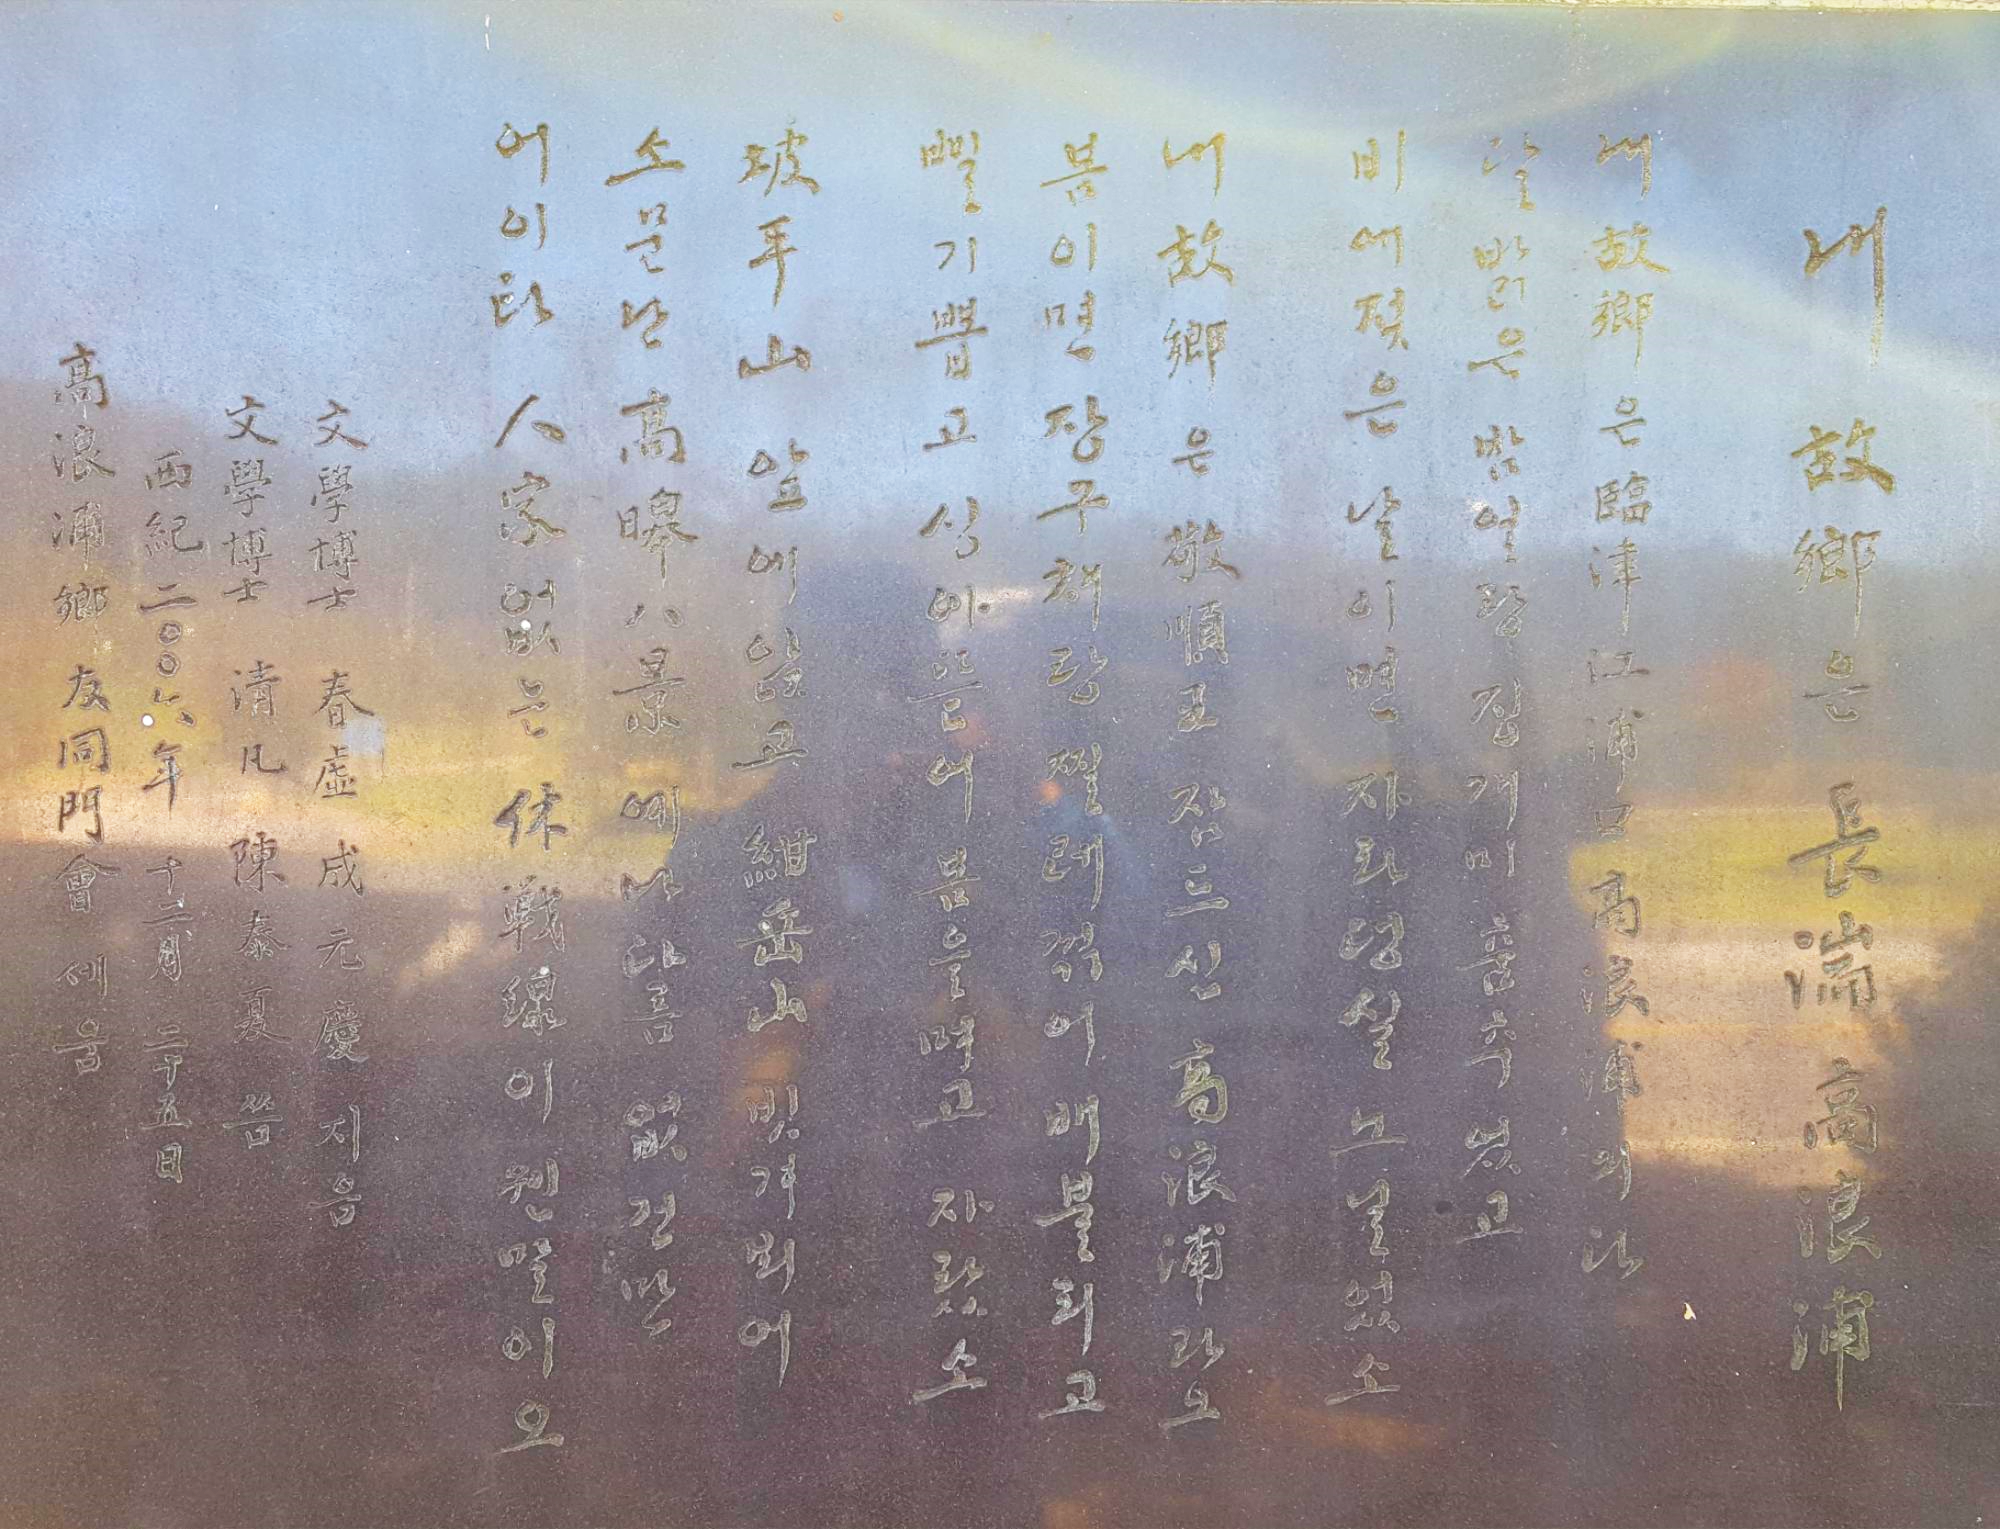 내 故鄕은 長湍 高浪浦
내 故鄕은 臨津江 浦口 高浪浦외다
달 밝은 밤얼랑 집개미 춤추었고
비에 젖은 날이면 자라 덩실 노닐었소
내 故鄕은 敬順王 잠드신 高浪浦라오
봄이면 장구채랑 찔레 꺾어 배불리고
삘기 뽑고 싱아 뜯어 봄을 먹고 자랐소
坡平山 앞에 앉고 紺岳山 빗겨 뵈어
소문난 高皞八景 예나 다름 없건만
어이타 人家 없는 休戰線이 웬말이오
文學博士 春虛 成元慶 지음
文學博士 清凡 陳泰夏 씀
西紀 二〇〇六年 十二月 二十五日
高浪浦鄕友同門會 세움